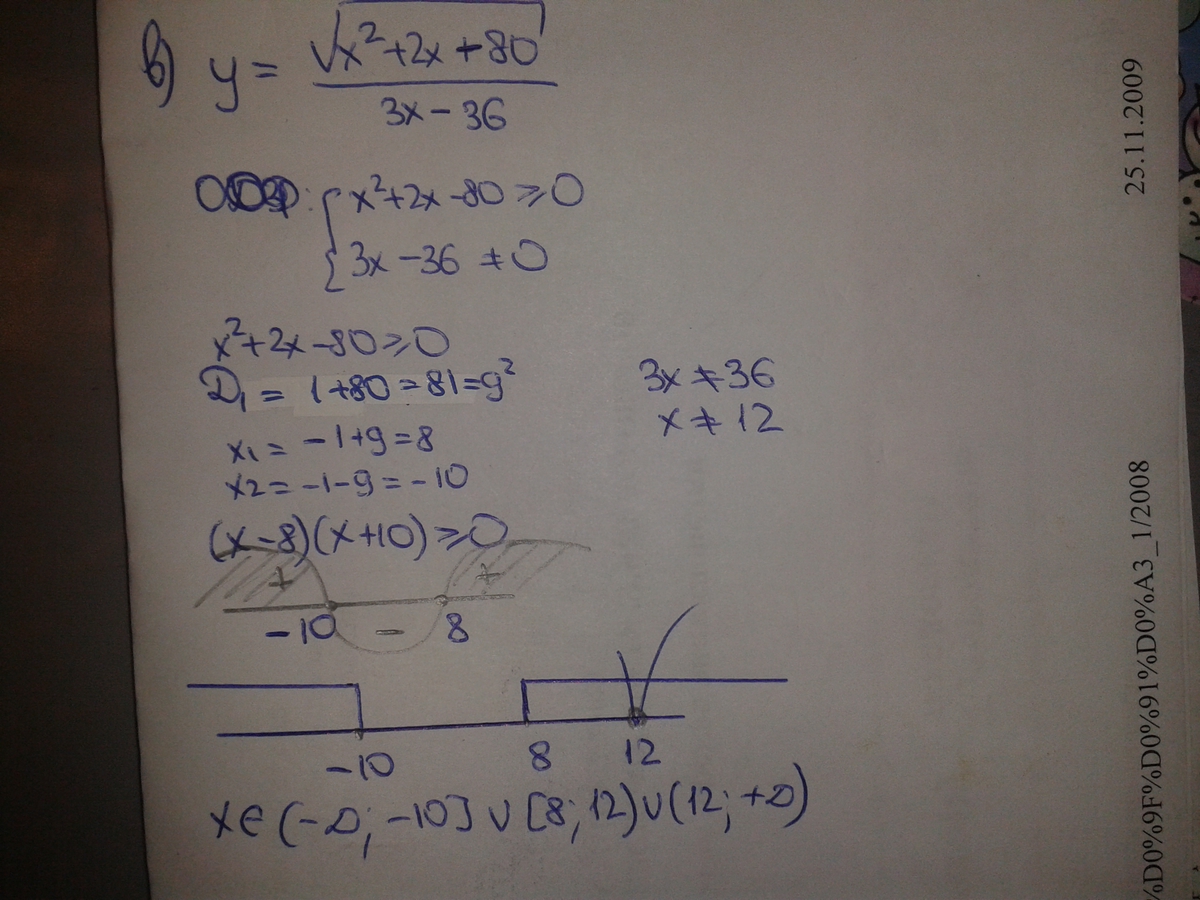 в) y = √x²+2x+80
3x - 36
x²+2x-80 ⩾ 0
3x - 36 ≠ 0
x²+2x-80⩾0
D₁ = 1+80 = 81 = 9²
3x ≠ 36
x₁ = -1+9=8
x ≠ 12
x2 = -1-9 = -10
(x-8)(x+10) ⩾ 0
+ +
-10 - 8
-10 8 12
x∈ (-∞; -10] ∪ [8; 12) ∪ (12; +∞)
25.11.2009
%D0%9F%D0%91%D0%A3_1/2008